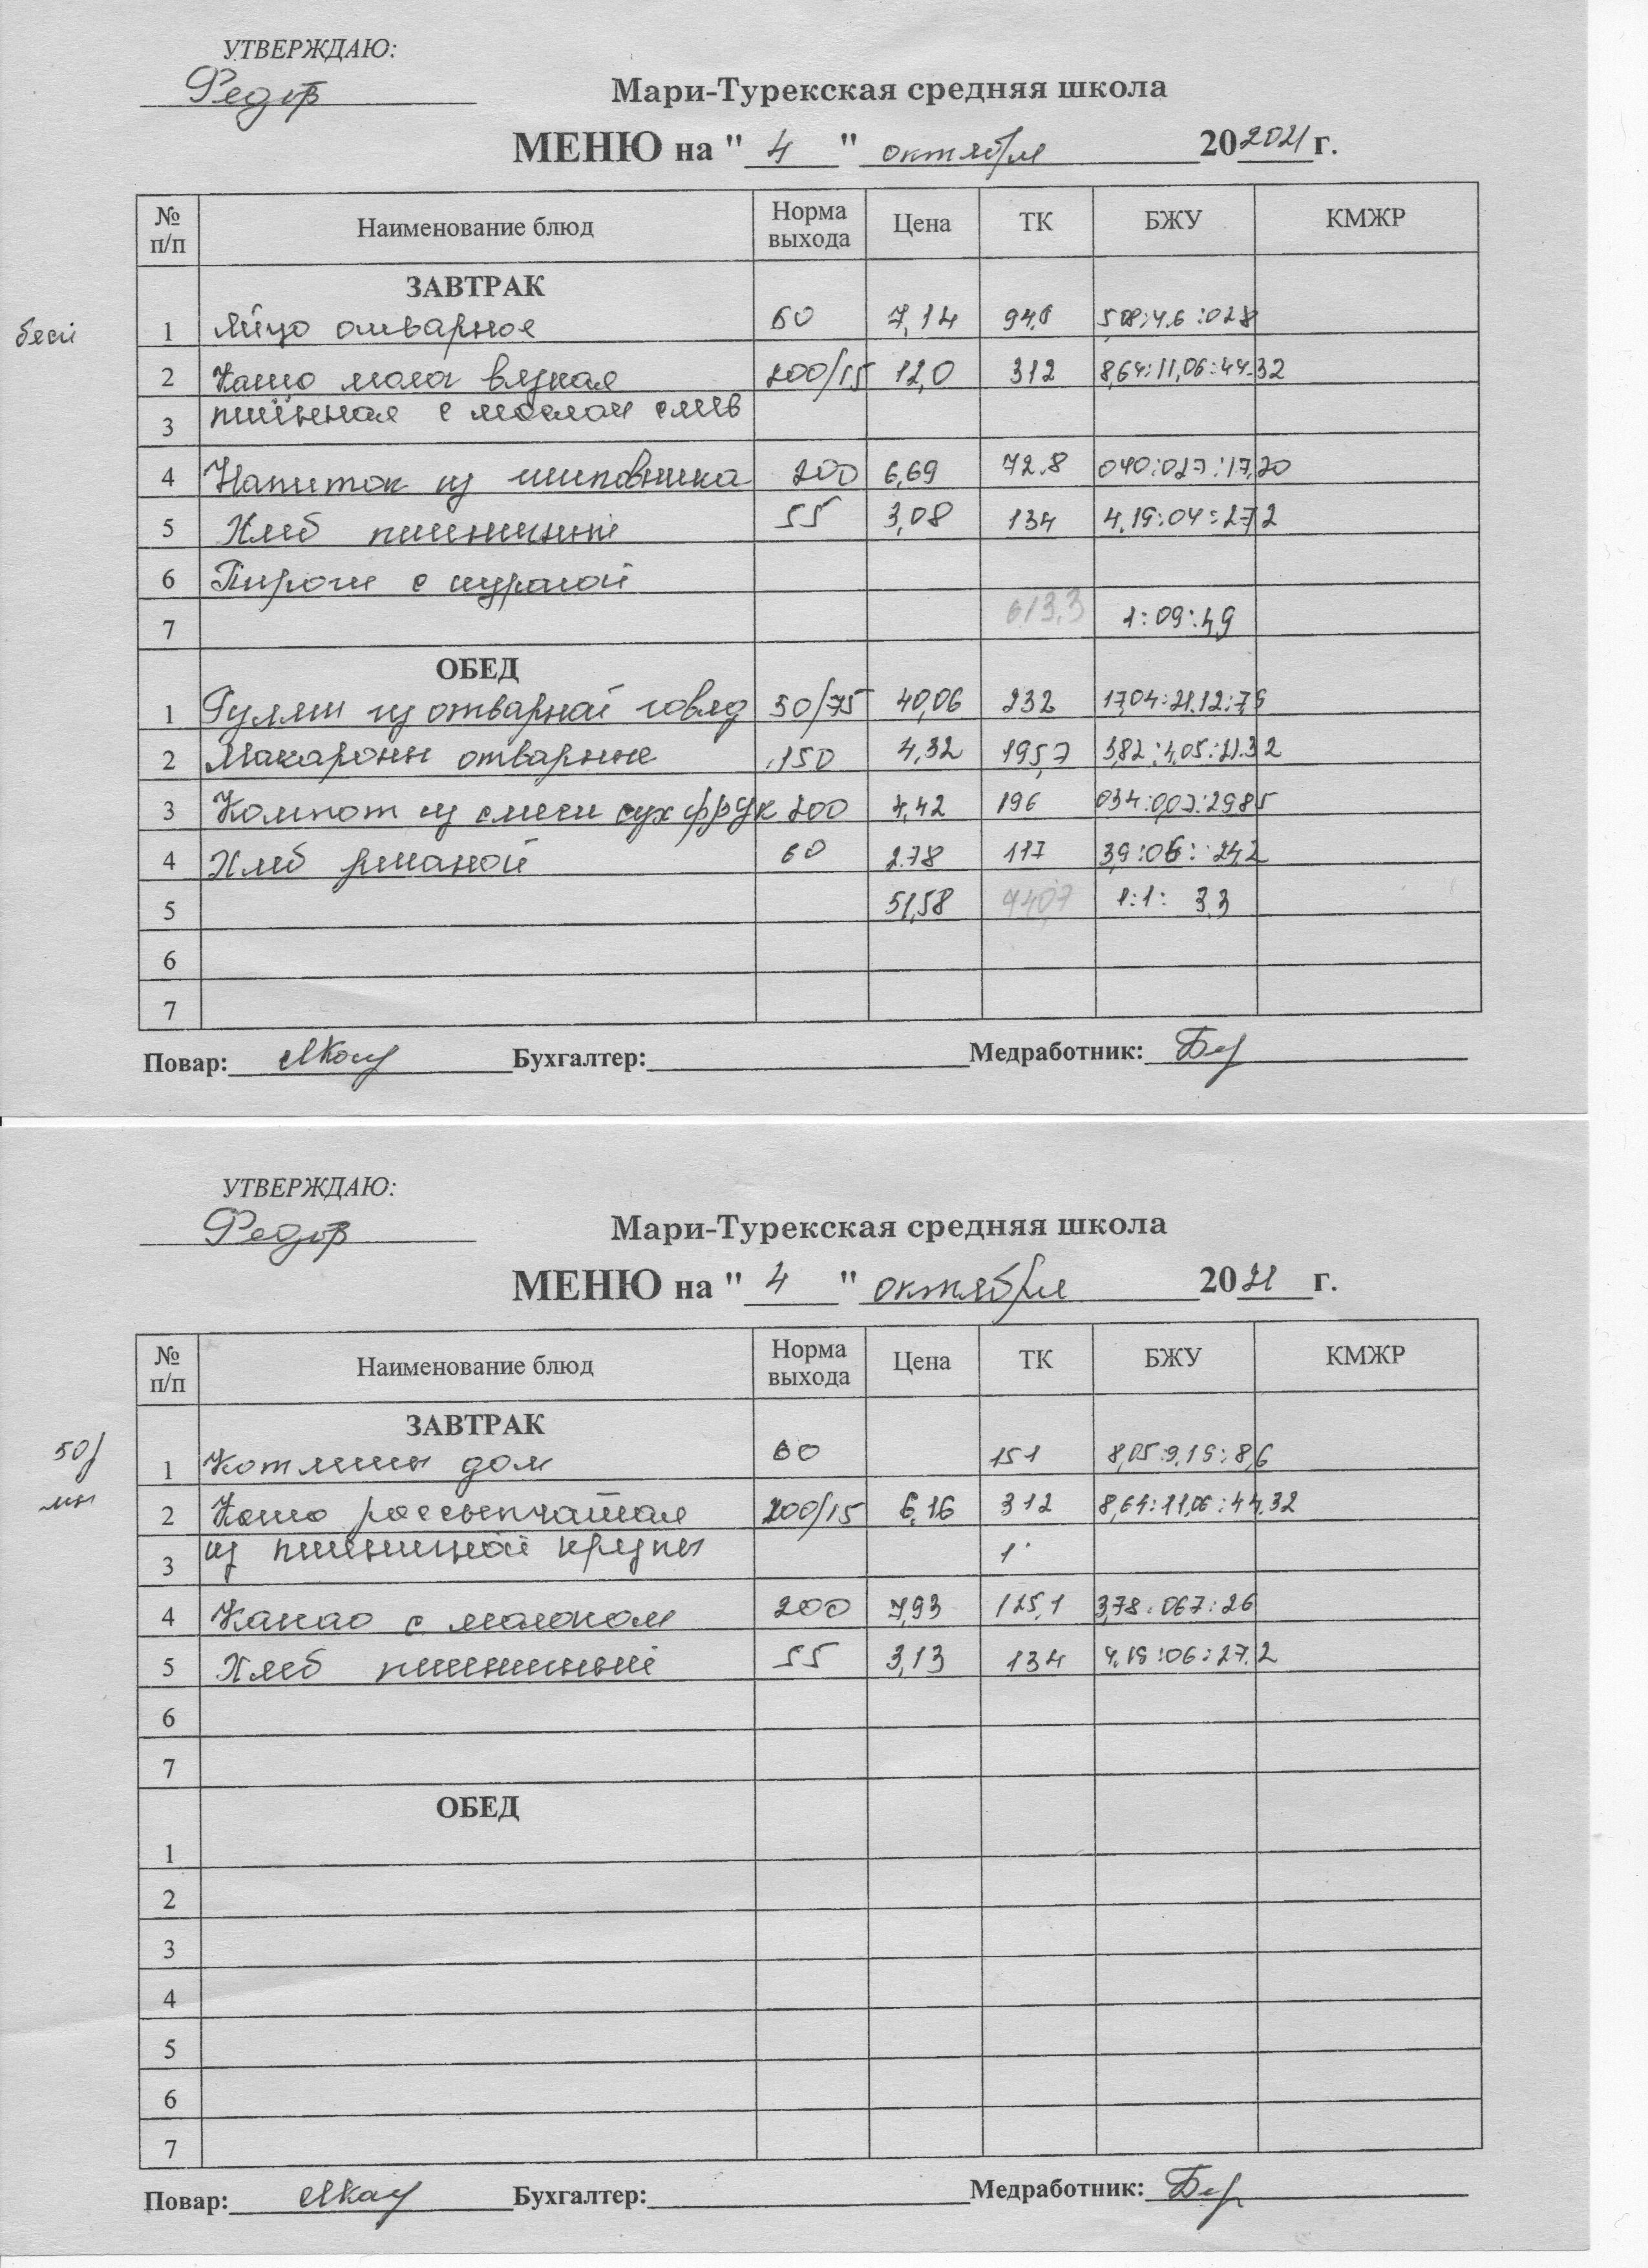 УТВЕРЖДАЮ:
Федор
Мари-Турекская средняя школа
МЕНЮ на " 4 " октября 20 2021 г.
№ п/п Наименование блюд Норма выхода Цена ТК БЖУ КМЖР
ЗАВТРАК
1 Яйцо отварное 60 7,14 94,8 5,08:4,6:028
2 Каша молоч вязкая 200/15 12,0 312 8,64:11,06:44.32
3 пшённая с маслом слив
4 Напиток из шиповника 200 6,69 72.8 040:027:17,20
5 Хлеб пшеничный 55 3,08 134 4,19:04:27,2
6 Пироги с курагой
7 613,3 1:09:4,9
ОБЕД
1 Гуляш из отварной говяд 50/75 40,06 232 17,04:21.12:7,6
2 Макароны отварные 150 4,32 195,7 3,82:4,05:21.32
3 Компот из смеси сух фрук 200 4,42 196 034:007:29,85
4 Хлеб ржаной 60 2.78 117 3,9:06:24,2
5 51,58 740,7 1:1: 3,3
6
7
Повар: Бухгалтер: Медработник:
УТВЕРЖДАЮ:
Федор
Мари-Турекская средняя школа
МЕНЮ на " 4 " октября 20 21 г.
№ п/п Наименование блюд Норма выхода Цена ТК БЖУ КМЖР
ЗАВТРАК
50р
1 Котлеты дом 60 151 8,05:9,19:8,6
2 Каша рассыпчатая 200/15 6,16 312 8,64:11,06:44.32
3 из пшеничной крупы
4 Какао с молоком 200 7,93 125,1 3,78:067:26
5 Хлеб пшеничный 55 3,13 134 4,19:06:27.2
6
7
ОБЕД
1
2
3
4
5
6
7
Повар: Бухгалтер: Медработник: